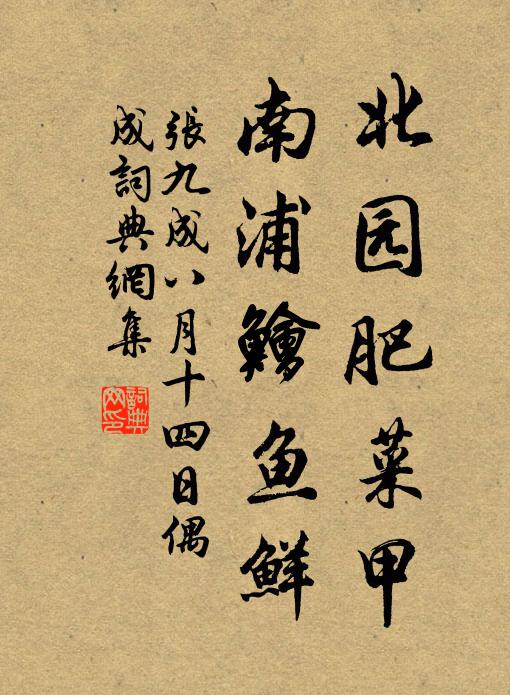 北园肥菜甲
南浦鱠鱼鮮
張九成八月十四日偶
成詞典網集
詞典
网印